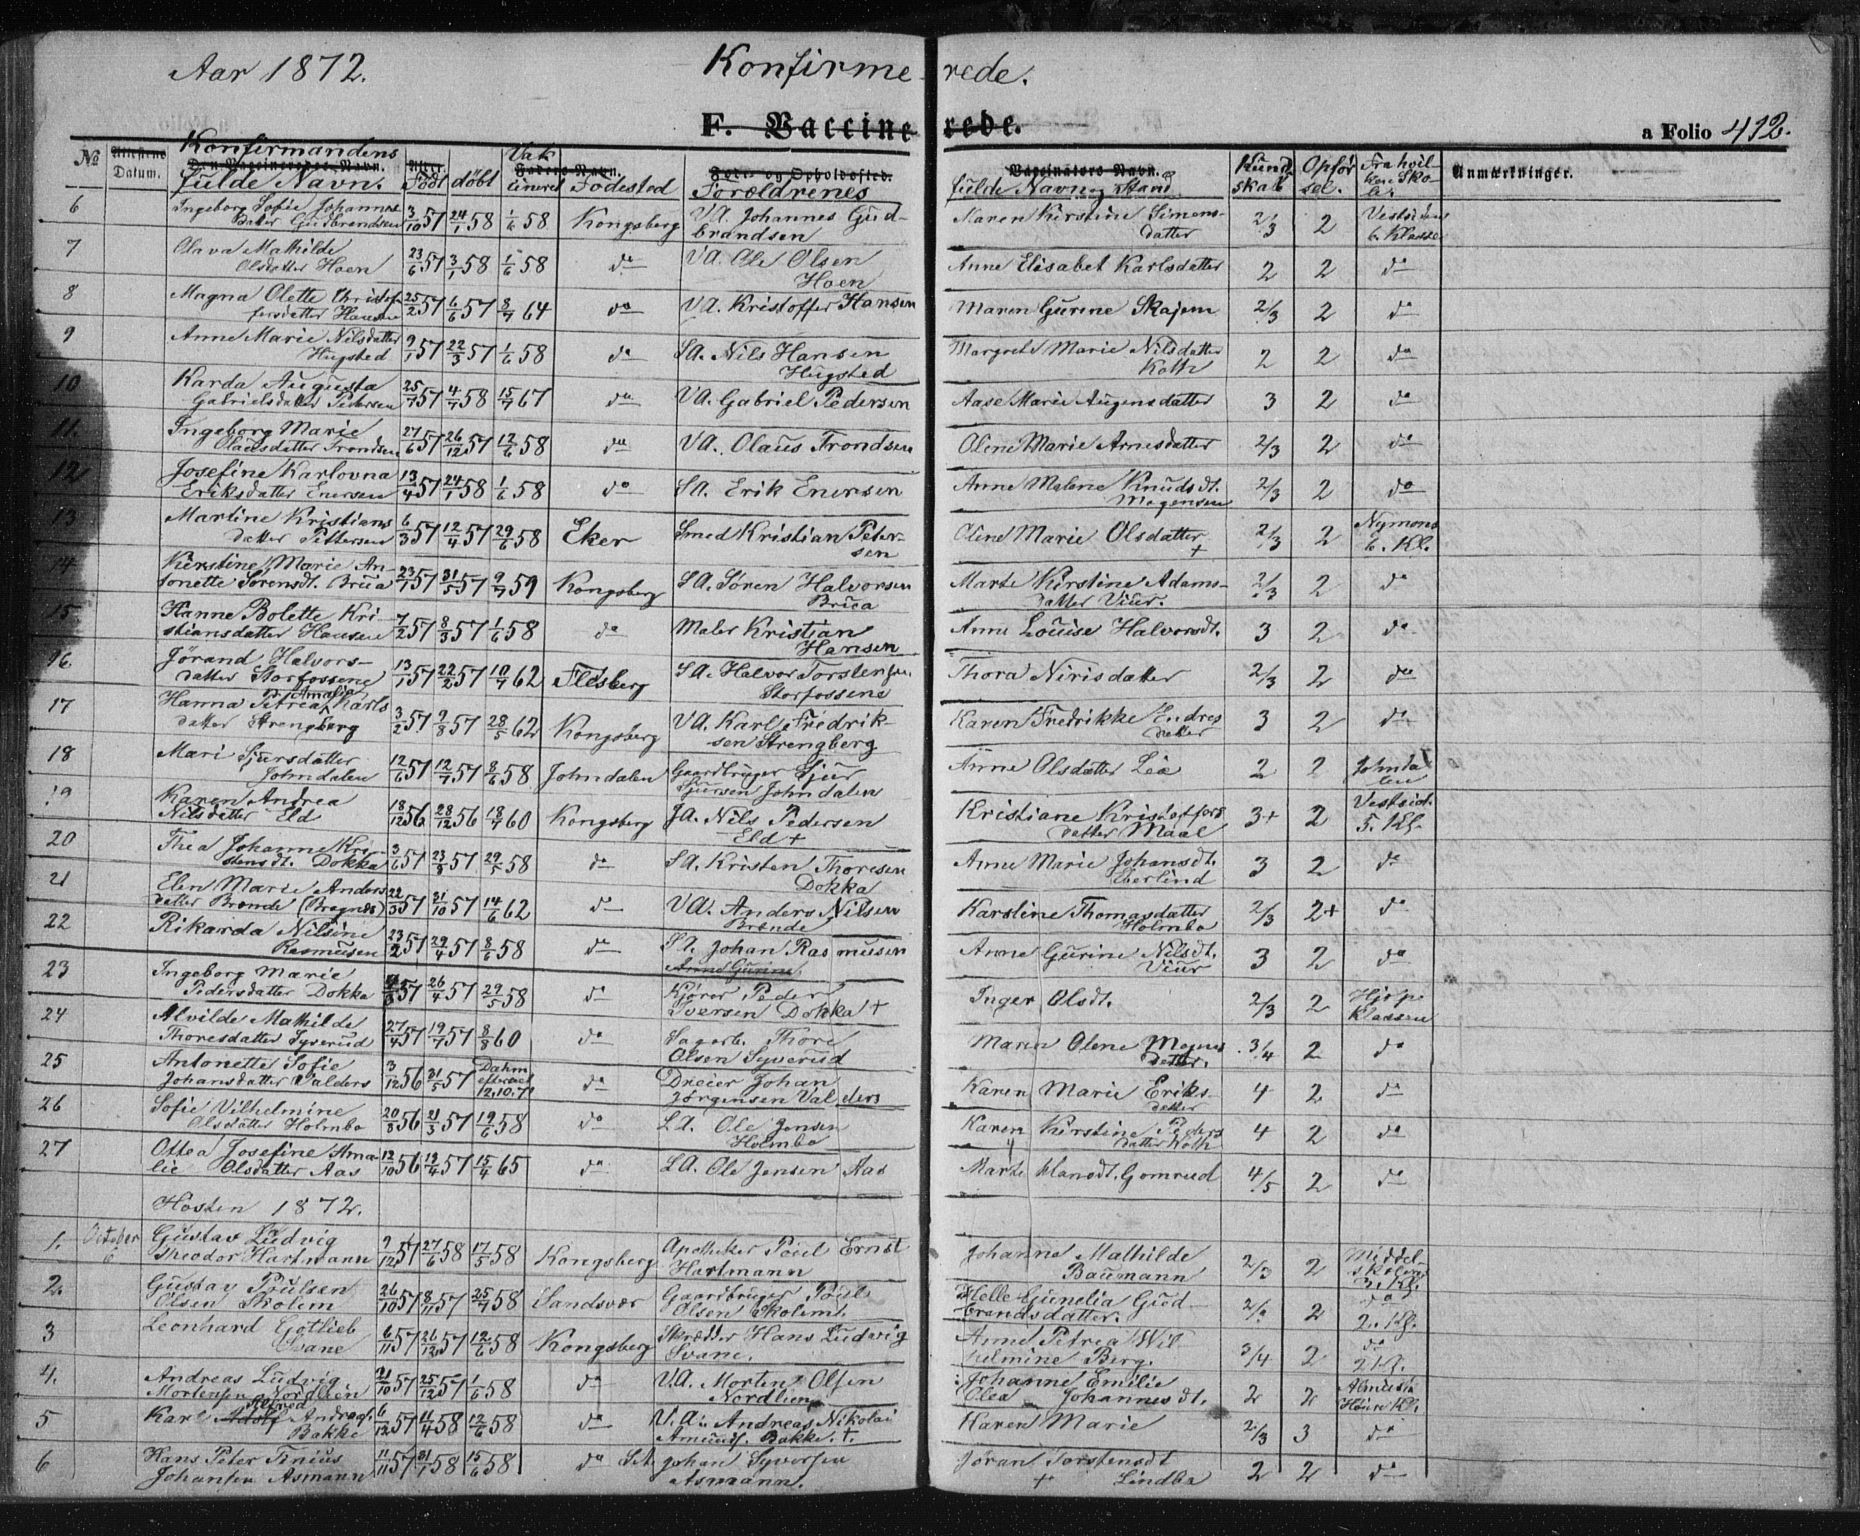 Aar 1872.
Konfirmerede.
F. Vaccinerede.
a Folio 412.
No Attestens Datum. Konfirmandens fulde Navn. Født døbt Vakcineret Fødested Forældrenes fulde Navn og Stand Kundskab Opførsel. Fra hvilken Skole. Anmærkninger.
6 Ingeborg Sofie Johannes Datter Gudbrandsen 3/10 57 24/1 58 1/6 58 Kongsberg VA. Johannes Gudbrandsen Karen Kirstine Simensdatter 2/3 2 Vestsiden 6. Klasse
7 Olava Mathilde Olsdatter Hoen 23/6 57 3/1 58 1/6 58 do VA. Ole Olsen Hoen Anne Elisabet Karlsdatter 2 2 do
8 Magna Olette Christoffersdatter Hansen 25/2 57 6/6 57 8/7 64 do VA. Kristoffer Hansen Maren Gurine Skajem 2/3 2 do
9 Anne Marie Nilsdatter Hugsted 9/1 57 22/3 57 1/6 58 do SA. Nils Hansen Hugsted Margrete Marie Nilsdatter Koth 2 2 do
10 Karda Augusta Gabrielsdatter Pedersen 25/7 57 4/7 58 15/7 67 do VA. Gabriel Pedersen Aase Marie Augensdatter 3 2 do
11. Ingeborg Marie Olausdatter Trondsen 27/6 57 26/12 57 12/6 58 do VA. Olaus Trondsen Olene Marie Arnesdatter 2/3 2 do
12 Josefine Karlovna Eriksdatter Enersen 13/4 57 24/1 58 1/6 58 do SA. Erik Enersen Anne Malene Knudsdt. Mogensen 2/3 2 do
13 Martine Kristiansdatter Pettersen 6/3 57 12/4 57 29/6 58 Eker Smed Kristian Petersen Olene Marie Olsdatter + 2/3 2 Nymoens 6. Kl.
14 Kirstine Marie Antonette Sørensdt. Brua 23/1 57 31/5 57 9/7 59 Kongsberg SA. Søren Halvorsen Brua Marte Kirstine Adamsdatter Viur. 2/3 2 do
15 Hanne Bolette Kristiansdatter Hansen 7/2 57 8/3 57 1/6 58 do Maler Kristian Hansen Anne Louise Halvorsdt. 3 2 do
16 Jørand Halvorsdatter Storfossene 13/1 57 22/2 57 10/7 62 Flesberg SA. Halvor Torstensen Storfossene Thora Nirisdatter 2/3 2 do
17 Hanna Petrea Amalia Karlsdatter Strengberg 3/2 57 9/8 57 28/5 62 Kongsberg VA. Karl Fredriksen Strengberg Karen Fredrikke Endresdatter 3 2 do
18 Mari Sjursdatter Johndalen 12/6 57 12/7 57 8/6 58 Johndalen Gaardbruger Sjur Sjursen Johndalen Anne Olsdatter Lia 2 2 Johndalen
19 Karen Andrea Nilsdatter Eld 18/12 56 28/12 56 18/7 60 Kongsberg JA. Nils Pedersen Eld + Kristiane Kristoffersdatter Maal 3+ 2 Vestsid. 5. Kl.
20 Thea Johanne Kristensdt. Dokka 3/6 57 23/8 57 29/5 58 do SA. Kristen Thoresen Dokka Anne Marie Johansdt. Eberlind 3 2 do
21 Elen Marie Andersdatter Brende (Bragnæs) 22/3 57 31/10 57 14/6 62 do VA. Anders Nilsen Brende Karstine Thomasdatter Holmbo 2/3 2+ do
22 Rikarda Nilsine Rasmusen 23/2 57 29/4 57 8/6 58 do SA. Johan Rasmussen Anne Gurine Anne Gurine Nilsdt. Viur 3 2 do
23 Ingeborg Marie Pedersdatter Dokka 57 26/4 57 29/5 58 do Kjører Peder Iversen Dokka + Inger Olsdt. 2/3 2 Hjælpeklassen
24 Alvilde Mathilde Thoresdatter Syverud 27/4 57 19/7 57 8/8 60 do Sagarb. Thore Olsen Syverud Maren Olene Mognesdatter. 3/4 2 do
25 Antonette Sofie Johansdatter Valders 3/12 56 31/5 57 12.10.7 do Dreier Johan Jørgensen Valders Karen Marie Eriksdatter 4 2 do
26 Sofie Vilhelmine Olsdatter Holmbo 20/8 56 21/3 57 19/6 58 do LA. Ole Jensen Holmbo Karen Kirstine Pedersdatter Koth 4 2 do
27 Ottea Josefine Amalie Olsdatter Aas 12/10 56 19/4 57 15/4 65 do LA. Ole Jensen Aas Marte Hansdt. Gomrud 4/5 2 do
Høsten 1872.
1. October 6 Gustav Ludvig Theodor Hartmann 9/12 57 27/6 58 17/5 58 Kongsberg Apotheker Poul Ernst Hartmann Johanne Mathilde Baumann 2/3 2 Middelskolens 3. Kl.
2. Gustav Poulsen Olsen Skolem 26/10 57 8/11 57 25/7 58 Sandsvær Gaardbruger Poul Olsen Skolem. Helle Gunelia Gudbrandsdatter. 2 do 2. Kl.
3 Leonhard Gotlieb Svane 6/11 57 26/12 57 12/6 58 Kongsberg Skrædder Hans Ludvig Svane. Anne Petrea Wilhelmine Berg. 3/4 2 do 2 Kl.
4. Andreas Ludvig Mortensen Nordlien 21/10 57 25/12 57 1/6 58 do V.A. Morten Olsen Nordlien Johanne Emilie Olea Johannesdt. 2 2 Almueskolens Høiere Kl.
5 Karl Adolf Alfred Andreas. Bakke 6/12 57 11/4 58 12/6 58 do V.A. Andreas Nikolai Amunds. Bakke. +. Karen Marie 2/3 3 do
6 Hans Peter Tinius Johansen Asmann 11/11 57 31/1 58 15/6 58 do SA Johan Syversen Asmann. Jøran Torstensdt + Lindbo 2 2 do